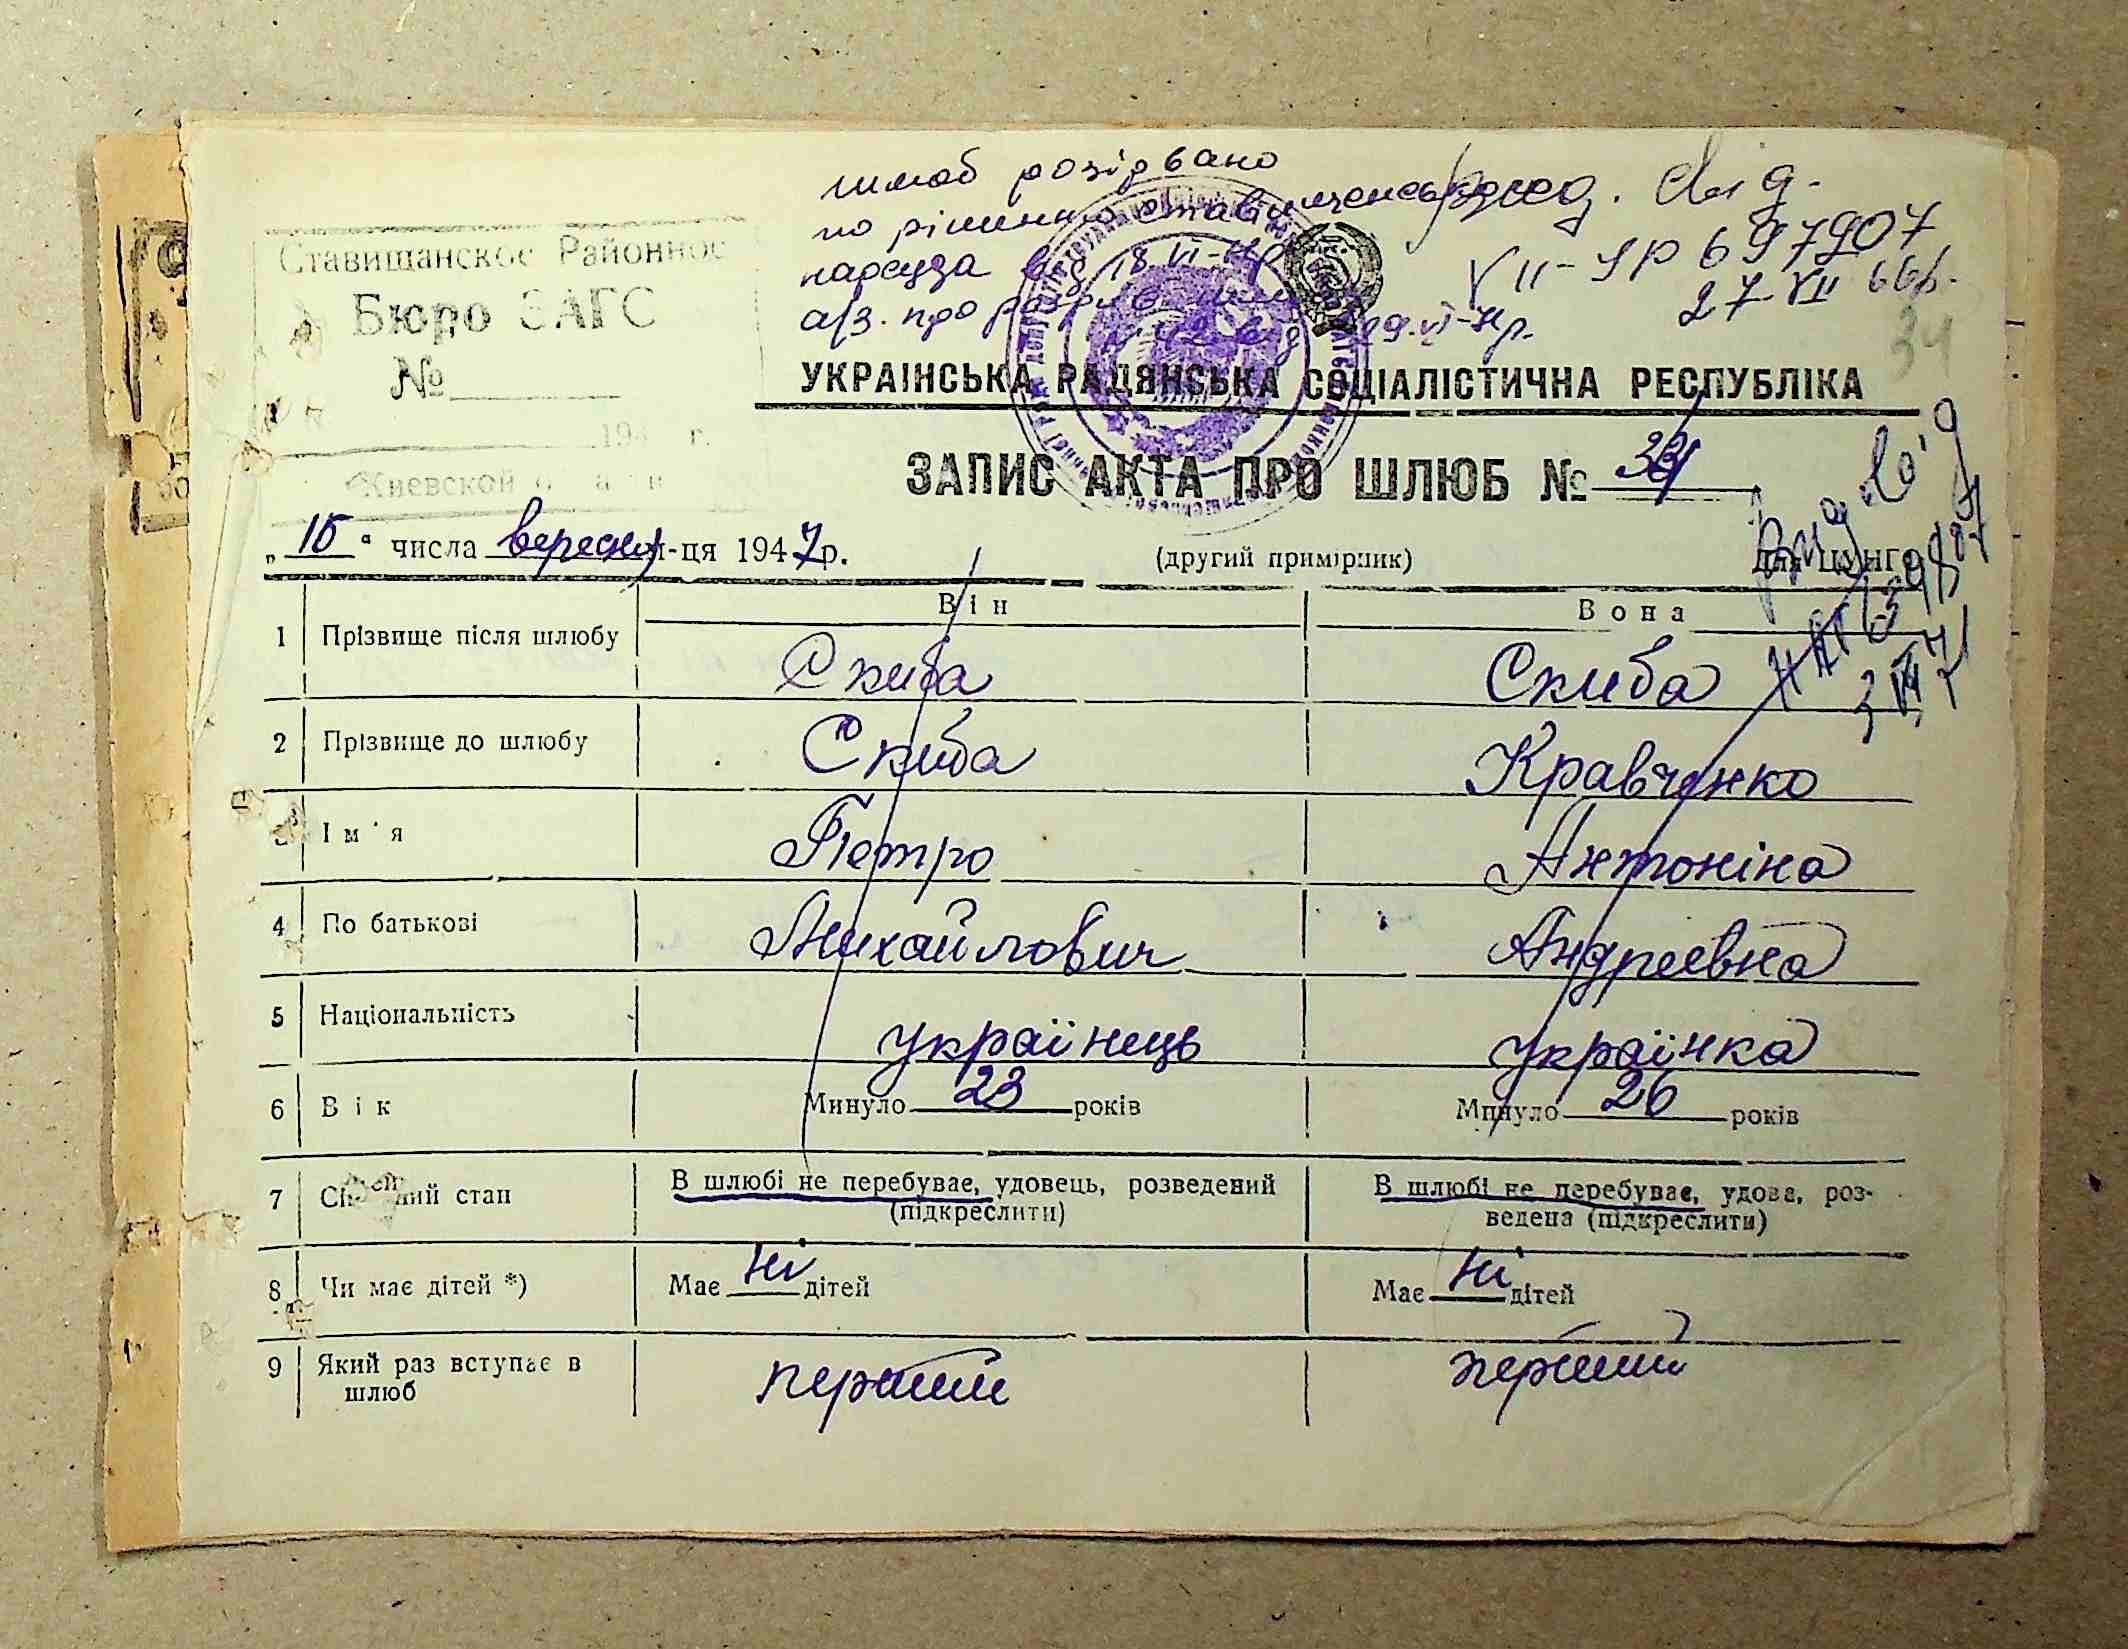 шлюб розірвано
по рішенню Ставищенського
нарсуда від 18.VI-71
а/з. про розрив шлюбу
№ 12 від 29.VI-71р.
VII-ЯР 697907
27 VII 66р.
34
Ставищанское Районное
Бюро ЗАГС
№
194 г.
Киевской
УКРАЇНСЬКА РАДЯНСЬКА СОЦІАЛІСТИЧНА РЕСПУБЛІКА
ЗАПИС АКТА ПРО ШЛЮБ №
„ 15 “ числа вересня м-ця 1947 р.
(другий примірник)
Для ЦУНГО
3 VII 71
Він
Вона
1 Прізвище після шлюбу Скиба Скиба
2 Прізвище до шлюбу Скиба Кравченко
3 Ім'я Петро Антоніна
4 По батькові Михайлович Андреевна
5 Національність українець українка
6 Вік Минуло 23 років Минуло 26 років
7 Сімейний стан В шлюбі не перебуває, удовець, розведений В шлюбі не перебуває, удова, роз-
(підкреслити) ведена (підкреслити)
8 Чи має дітей *) Має ні дітей Має ні дітей
9 Який раз вступає в перший перший
шлюб